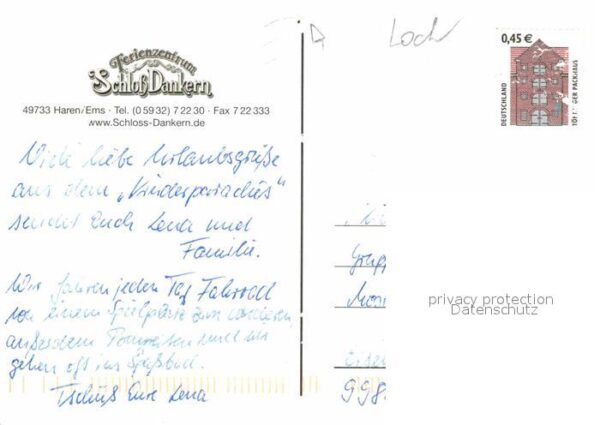 Loch
0,45 €
DEUTSCHLAND
Ferienzentrum
Schloß Dankern
49733 Haren/Ems · Tel. (0 59 32) 7 22 30 · Fax 7 22 333
www.Schloss-Dankern.de
Viele liebe Urlaubsgrüße
aus dem „Kinderparadies"
sendet Euch Lena und
Familie.
Wir fahren jeden Tag Fahrrad
von einem Spielplatz zum anderen
außerdem Ponyreiten und wir
gehen oft ins Spaßbad.
Tschüß Eure Lena
998
privacy protection
Datenschutz